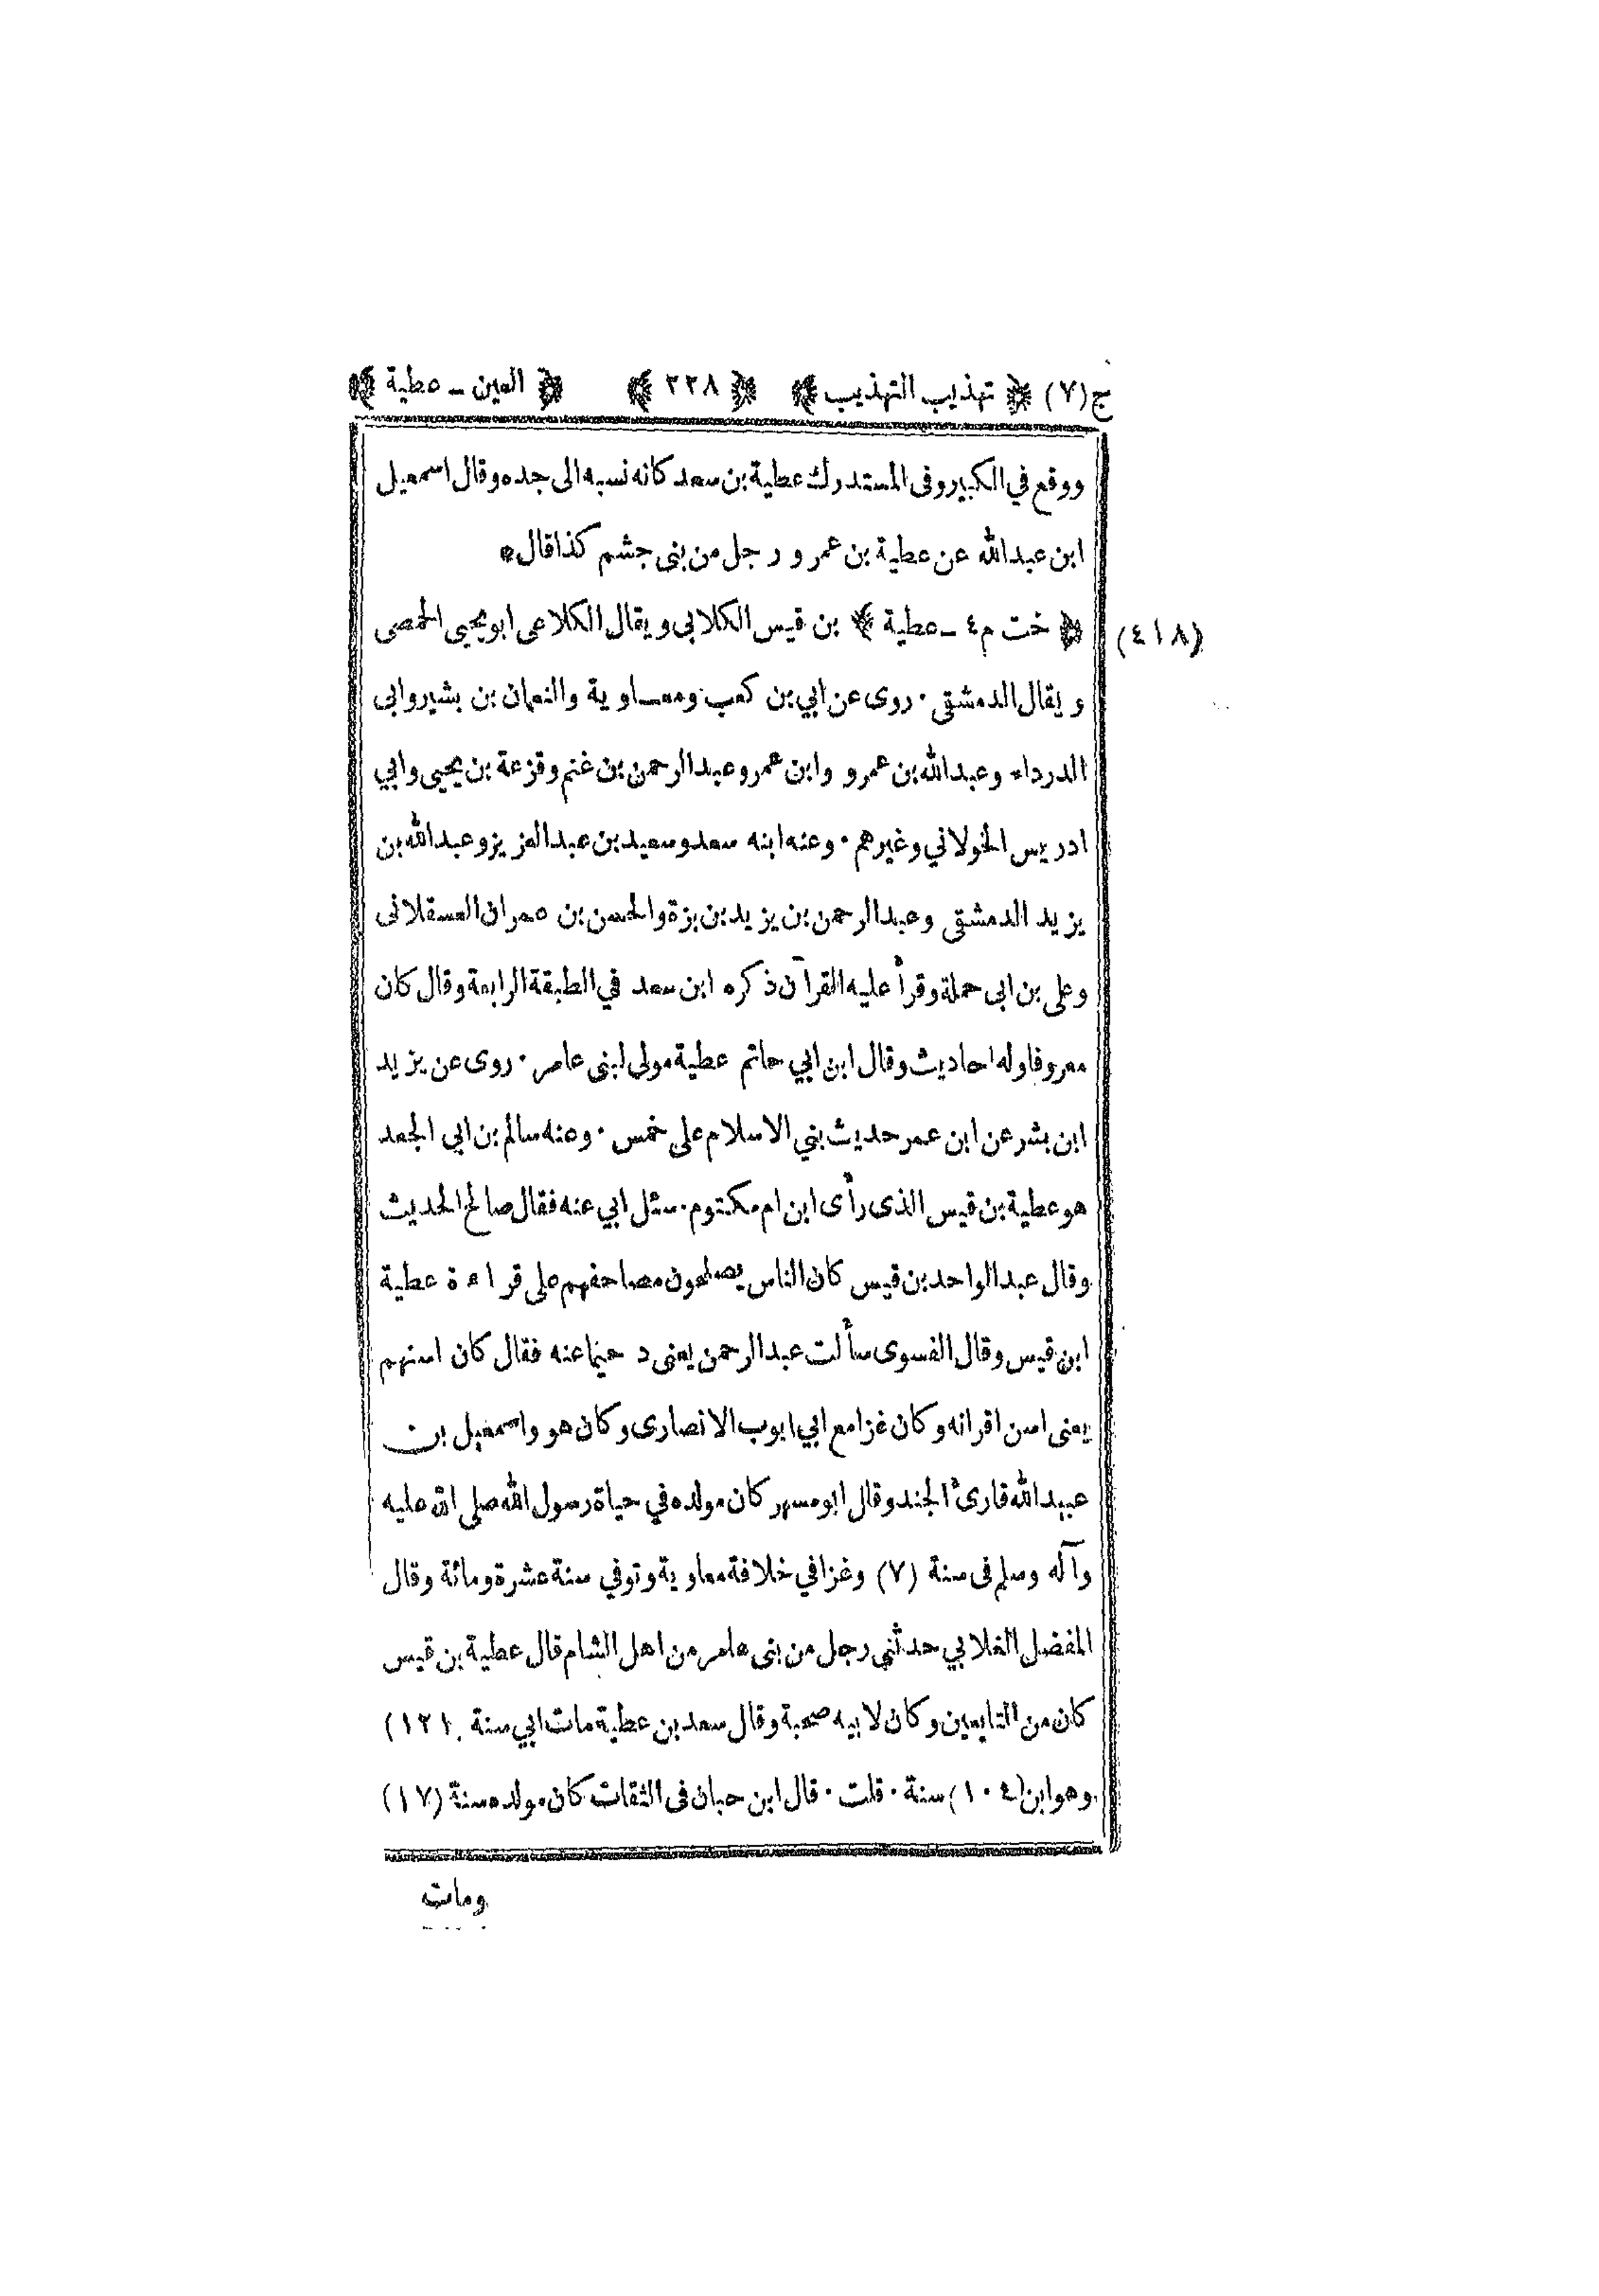 ج(٧) ﴿ تهذيب التهذيب ﴾ ﴿ ٢٢٨ ﴾ ﴿ العين ـ عطية ﴾
ووقع في الكبير وفى المستدرك عطية بن سعد كانه نسبه الى جده وقال اسمعيل
ابن عبدالله عن عطية بن عمرو رجل من بنى جشم كذا قال*
﴿ خت م٤ ـ عطية ﴾ بن قيس الكلابى ويقال الكلاعى ابو يحيى الحمصى
(٤١٨)
ويقال الدمشقى ٠ روى عن ابي بن كعب ومعاوية والنعمان بن بشير وابى
الدرداء وعبدالله بن عمرو وابن عمر وعبدالرحمن بن غنم وقزعة بن يحيى وابي
ادريس الخولاني وغيرهم ٠ وعنه ابنه سعد وسعيد بن عبدالعزيز وعبدالله بن
يزيد الدمشقى وعبدالرحمن بن يزيد بن بزة والحسن بن عمران العسقلانى
وعلى بن ابى حملة وقرأ عليه القرآن ذكره ابن سعد في الطبقة الرابعة وقال كان
معروفا وله احاديث وقال ابن ابي حاتم عطية مولى لبنى عامر ٠ روى عن يزيد
ابن بشر عن ابن عمر حديث بني الاسلام على خمس ٠ وعنه سالم بن ابي الجعد
هو عطية بن قيس الذى رأى ابن ام مكتوم ٠ سئل ابي عنه فقال صالح الحديث
وقال عبدالواحد بن قيس كان الناس يصلحون مصاحفهم على قراءة عطية
ابن قيس وقال الفسوى سألت عبدالرحمن يعنى دحيما عنه فقال كان اسنهم
يعنى اسن اقرانه وكان غزا مع ابي ايوب الانصارى وكان هو واسمعيل بن
عبيدالله قارئ الجند وقال ابو مسهر كان مولده في حياة رسول الله صلى الله عليه
وآله وسلم فى سنة (٧) وغزا في خلافة معاوية وتوفي سنة عشرة ومائة وقال
المفضل الغلابي حدثني رجل من بنى عامر من اهل الشام قال عطية بن قيس
كان من التابعين وكان لابيه صحبة وقال سعد بن عطية مات ابي سنة (١٢١)
وهو ابن (١٠٤) سنة ٠ قلت ٠ قال ابن حبان فى الثقات كان مولده سنة (١٧)
ومات